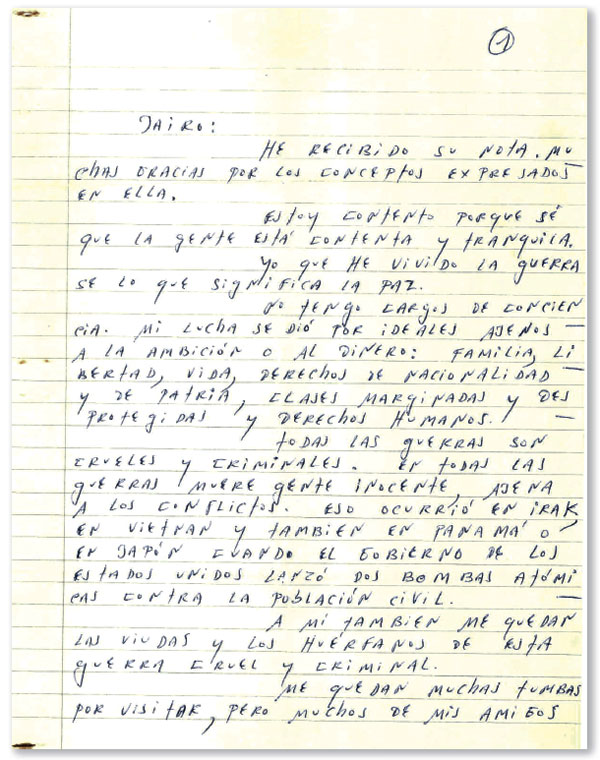 1
JAIRO:
HE RECIBIDO SU NOTA. MU
CHAS GRACIAS POR LOS CONCEPTOS EXPRESADOS
EN ELLA.
ESTOY CONTENTO PORQUE SÉ
QUE LA GENTE ESTÁ CONTENTA Y TRANQUILA.
YO QUE HE VIVIDO LA GUERRA
SE LO QUE SIGNIFICA LA PAZ.
NO TENGO CARGOS DE CONCIEN
CIA. MI LUCHA SE DIÓ POR IDEALES AJENOS
A LA AMBICIÓN O AL DINERO: FAMILIA, LI
BERTAD, VIDA, DERECHOS DE NACIONALIDAD
Y DE PATRIA, CLASES MARGINADAS Y DES
PROTEGIDAS Y DERECHOS HUMANOS.
TODAS LAS GUERRAS SON
CRUELES Y CRIMINALES. EN TODAS LAS
GUERRAS MUERE GENTE INOCENTE, AJENA
A LOS CONFLICTOS. ESO OCURRIÓ EN IRAK,
EN VIETNAN Y TAMBIEN EN PANAMÁ O
EN JAPÓN CUANDO EL GOBIERNO DE LOS
ESTADOS UNIDOS LANZÓ DOS BOMBAS ATÓMI
CAS CONTRA LA POBLACIÓN CIVIL.
A MI TAMBIEN ME QUEDAN
LAS VIUDAS Y LOS HUÉRFANOS DE ESTA
GUERRA CRUEL Y CRIMINAL.
ME QUEDAN MUCHAS TUMBAS
POR VISITAR, PERO MUCHOS DE MIS AMIGOS